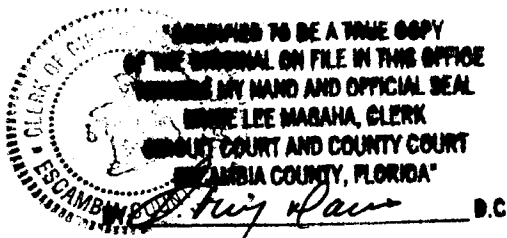 "CERTIFIED TO BE A TRUE COPY
OF THE ORIGINAL ON FILE IN THIS OFFICE
WITNESS MY HAND AND OFFICIAL SEAL
ERNIE LEE MAGAHA, CLERK
CIRCUIT COURT AND COUNTY COURT
ESCAMBIA COUNTY, FLORIDA"
D.C
CLERK OF
ESCAMBIA